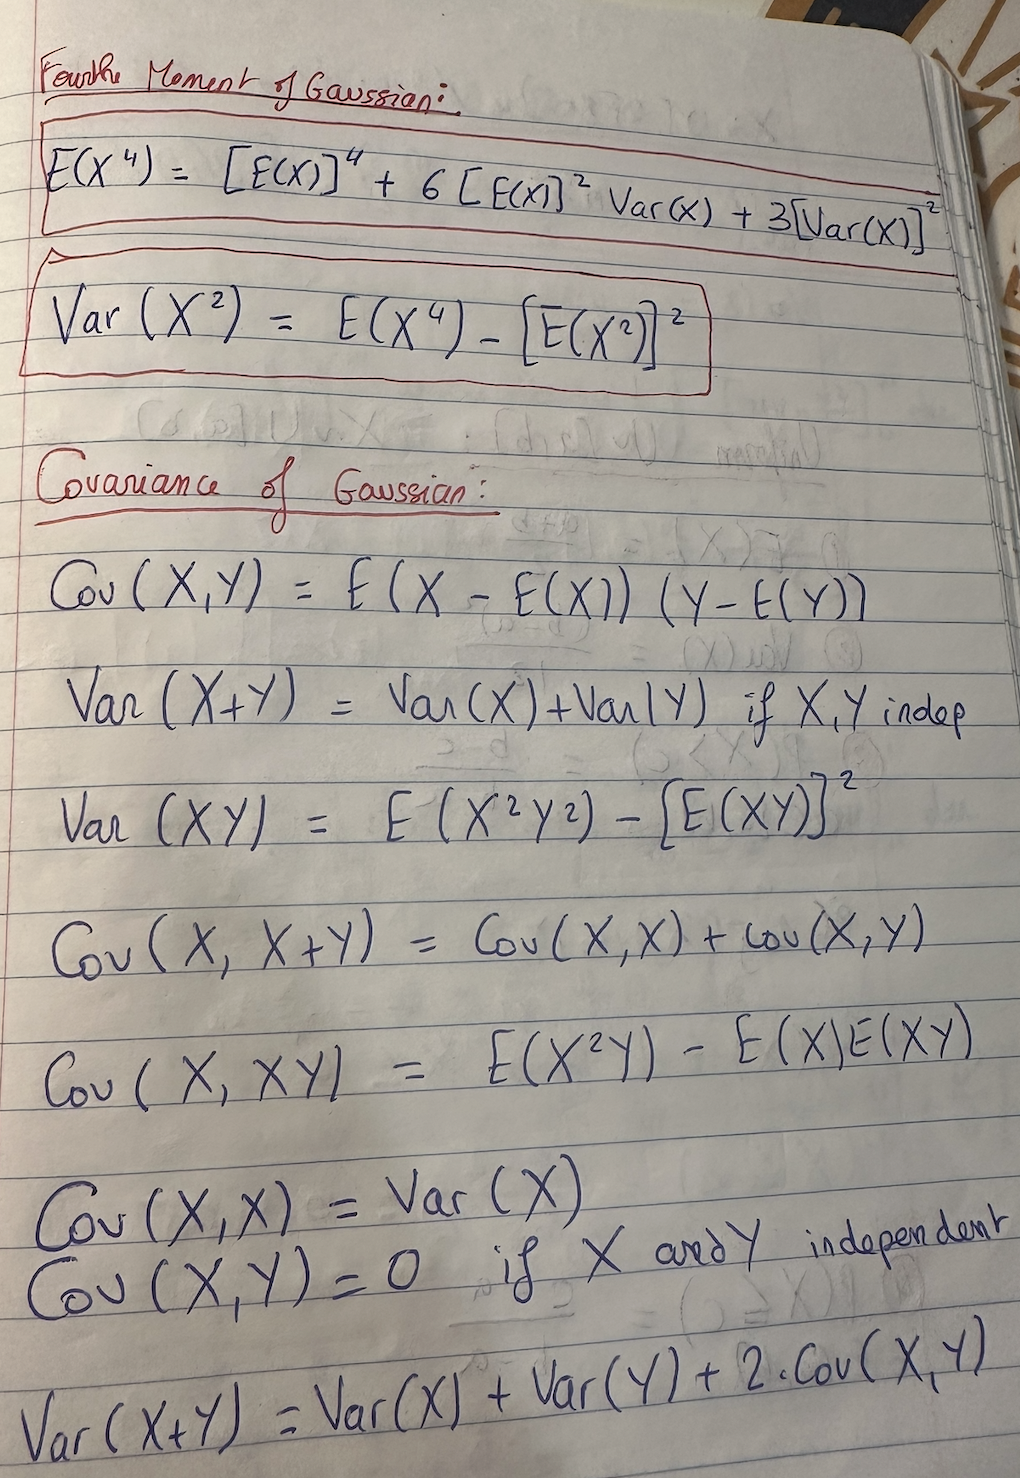 Fourthe Moment of Gaussian:
E(X⁴) = [E(X)]⁴ + 6 [E(X)]² Var(X) + 3[Var(X)]²
Var (X²) = E(X⁴) - [E(X²)]²
Covariance of Gaussian:
Cov (X,Y) = E (X - E(X)) (Y - E(Y))
Var (X+Y) = Var(X)+Var(Y) if X,Y indep
Var (XY) = E (X²Y²) - [E(XY)]²
Cov (X, X+Y) = Cov(X,X) + Cov(X,Y)
Cov (X, XY) = E(X²Y) - E(X)E(XY)
Cov (X,X) = Var (X)
Cov (X,Y) = 0 if X and Y independent
Var (X+Y) = Var(X) + Var(Y) + 2.Cov(X,Y)